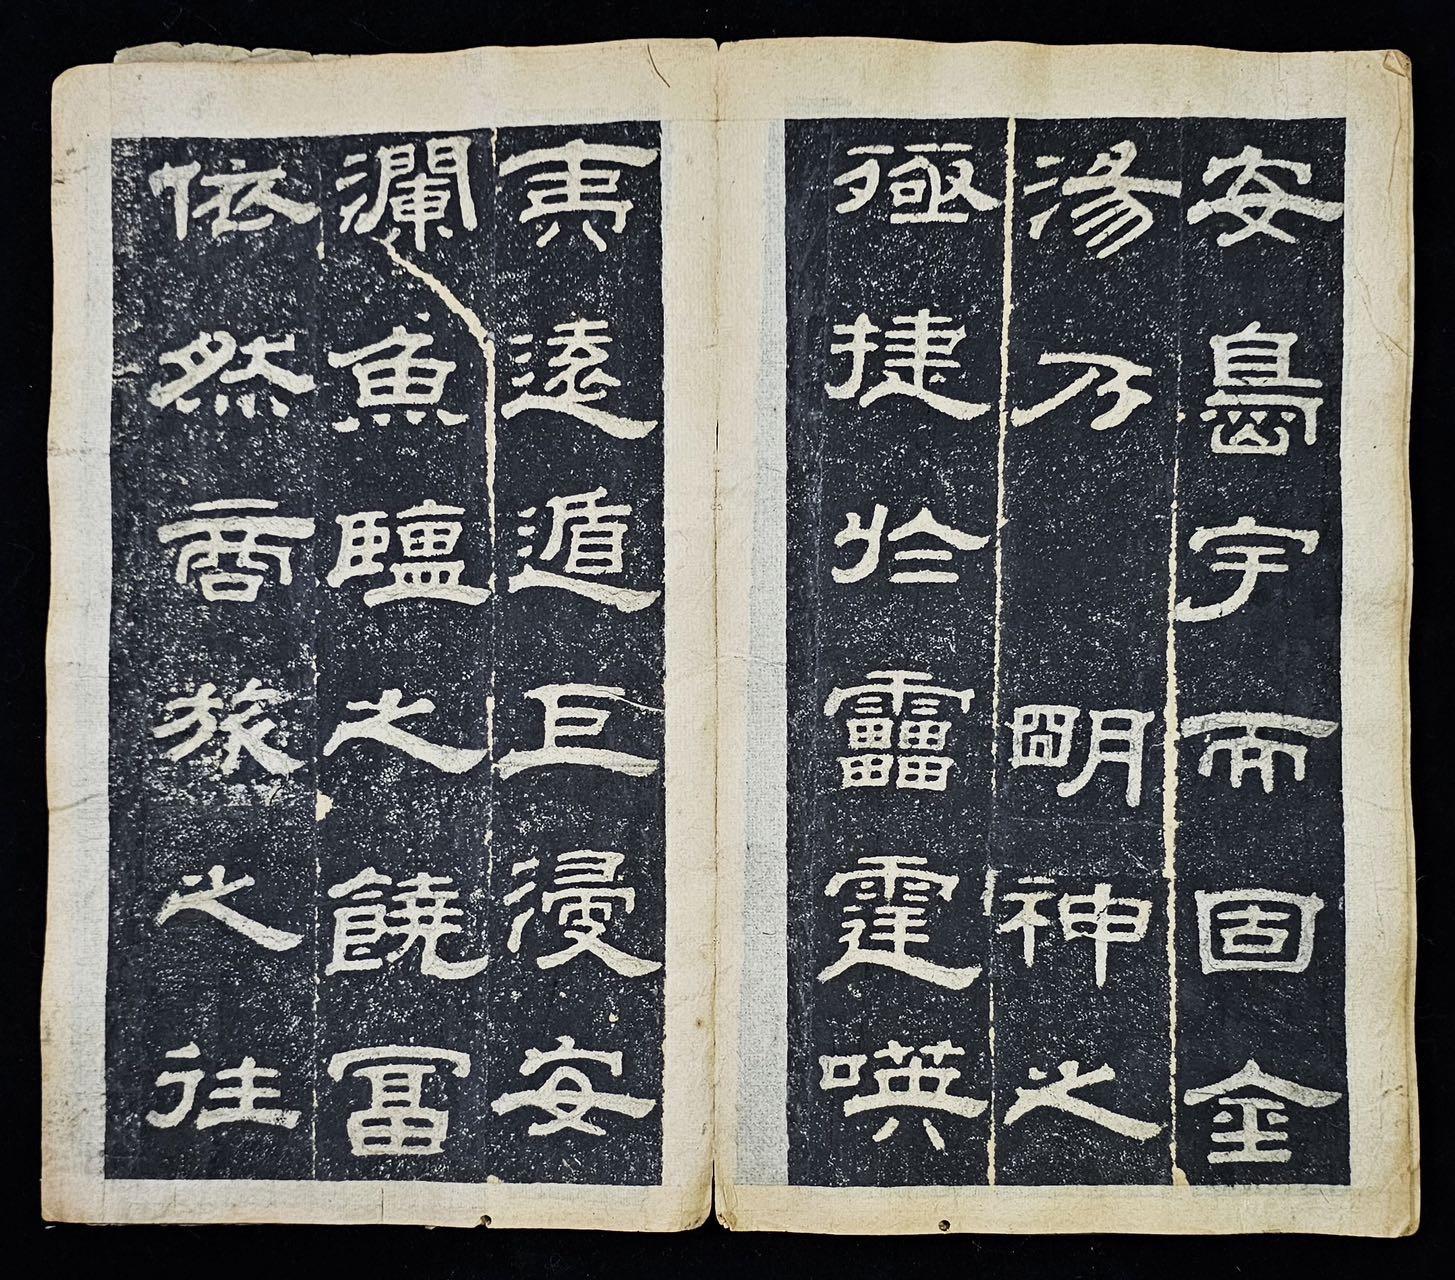 安島宇而固金
湯乃朙神之
殛捷於靁霆𠸄
夷遠遁巨浸安
瀾魚鹽之饒富
依然商旅之往